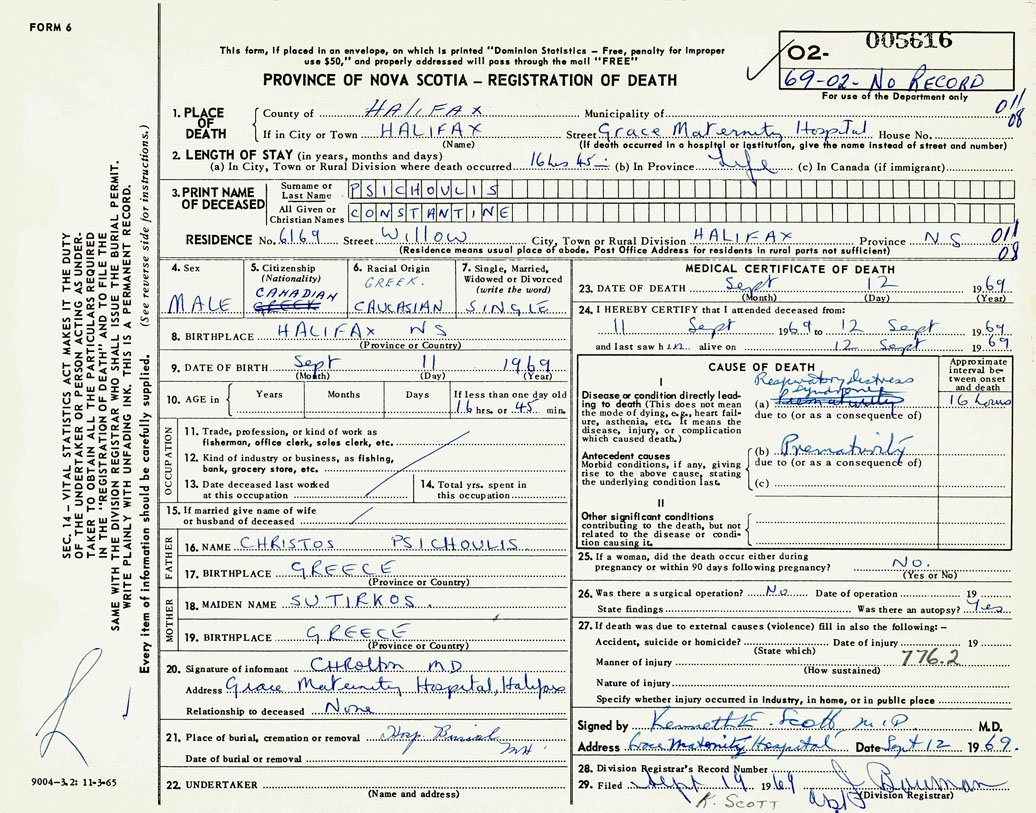 FORM 6
This form, if placed in an envelope, on which is printed "Dominion Statistics – Free, penalty for improper
use $50," and properly addressed will pass through the mail "FREE"
PROVINCE OF NOVA SCOTIA – REGISTRATION OF DEATH
005616
O2-
69-02- NO RECORD
For use of the Department only
011
08
1. PLACE OF DEATH
County of HALIFAX Municipality of
If in City or Town HALIFAX Street Grace Maternity Hospital House No.
(Name) (If death occurred in a hospital or institution, give the name instead of street and number)
2. LENGTH OF STAY (in years, months and days)
(a) In City, Town or Rural Division where death occurred 16 hrs 45 – (b) In Province Life (c) In Canada (if immigrant)
3. PRINT NAME OF DECEASED
Surname or Last Name PSICHOULIS
All Given or Christian Names CONSTANTINE
RESIDENCE No. 6169 Street Willow City, Town or Rural Division HALIFAX Province NS
011
08
(Residence means usual place of abode. Post Office Address for residents in rural parts not sufficient)
4. Sex
MALE
5. Citizenship
(Nationality)
CANADIAN
GREEK
6. Racial Origin
GREEK.
CAUCASIAN
7. Single, Married,
Widowed or Divorced
(write the word)
SINGLE
8. BIRTHPLACE HALIFAX NS
(Province or Country)
9. DATE OF BIRTH Sept 11 1969
(Month) (Day) (Year)
10. AGE in Years Months Days If less than one day old
16 hrs. or 45 min.
OCCUPATION
11. Trade, profession, or kind of work as
fisherman, office clerk, sales clerk, etc.
12. Kind of industry or business, as fishing,
bank, grocery store, etc.
13. Date deceased last worked
at this occupation
14. Total yrs. spent in
this occupation
15. If married give name of wife
or husband of deceased
FATHER
16. NAME CHRISTOS PSICHOULIS
17. BIRTHPLACE GREECE
(Province or Country)
MOTHER
18. MAIDEN NAME SUTIRKOS.
19. BIRTHPLACE GREECE
(Province or Country)
20. Signature of informant M.D
Address Grace Maternity Hospital, Halifax
Relationship to deceased None
21. Place of burial, cremation or removal Hosp Burial
Date of burial or removal
22. UNDERTAKER
(Name and address)
MEDICAL CERTIFICATE OF DEATH
23. DATE OF DEATH Sept 12 1969
(Month) (Day) (Year)
24. I HEREBY CERTIFY that I attended deceased from:
11 Sept 1969 to 12 Sept 1969
and last saw him alive on 12 Sept 1969
CAUSE OF DEATH
Approximate interval between onset and death
I
Disease or condition directly leading to death (This does not mean
the mode of dying, e.g., heart failure, asthenia, etc. It means the
disease, injury, or complication
which caused death.)
Respiratory distress
syndrome
(a) Prematurity 16 hours
due to (or as a consequence of)
Antecedent causes
Morbid conditions, if any, giving
rise to the above cause, stating
the underlying condition last.
(b) Prematurity
due to (or as a consequence of)
(c)
II
Other significant conditions
contributing to the death, but not
related to the disease or condition causing it.
25. If a woman, did the death occur either during
pregnancy or within 90 days following pregnancy? No.
(Yes or No)
26. Was there a surgical operation? No Date of operation 19
State findings Was there an autopsy? Yes
27. If death was due to external causes (violence) fill in also the following: –
Accident, suicide or homicide? Date of injury 19
(State which)
Manner of injury 776.2
(How sustained)
Nature of injury
Specify whether injury occurred in industry, in home, or in public place
Signed by Kenneth E. Scott, M.D. M.D.
Address Grace Maternity Hospital Date Sept 12 1969.
28. Division Registrar's Record Number
29. Filed Sept 19 1969 J Bauman
(Division Registrar)
K. SCOTT
SEC. 14 – VITAL STATISTICS ACT MAKES IT THE DUTY
OF THE UNDERTAKER OR PERSON ACTING AS UNDER-
TAKER TO OBTAIN ALL THE PARTICULARS REQUIRED
IN THE "REGISTRATION OF DEATH" AND TO FILE THE
SAME WITH THE DIVISION REGISTRAR WHO SHALL ISSUE THE BURIAL PERMIT.
WRITE PLAINLY WITH UNFADING INK. THIS IS A PERMANENT RECORD.
Every item of information should be carefully supplied. (See reverse side for instructions.)
9004-3.2: 11-3-65